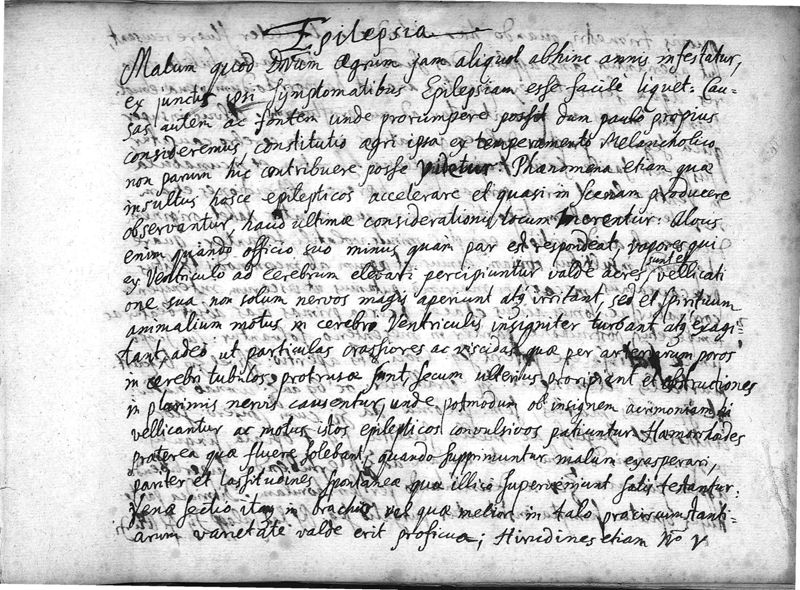 Epilepsia
Malum quod Dnum ægrum jam aliquot abhinc annis infestatur,
ex junctis ipsi symptomatibus Epilepsiam esse facilè liquet: Cau-
sas autem ac fontem unde prorumpere possit dum paulo propius
consideremus constitutio ægri ipsa ex temperamento Melancholico
non parum hic contribuere posse videtur: Phænomena etiam quæ
insultus hosce epilepticos accelerare et quasi in scenam producere
observantur, haud ultimæ considerationis locum merentur: Alvus
enim quando officio suo minus quam par est respondeat, vapores qui
ex Ventriculo ad cerebrum elevari percipiuntur valdè acres sunt et vellicati
one sua non solum nervos magis aperiunt atq irritant, sed et spirituum
animalium motus in cerebro Ventriculis insigniter turbant atq exagi-
tant, adeo ut particulas crassiores ac viscidas quæ per arteriarum poros
in cerebri tubulos protrusæ sunt, secum ulterius proripient et obstructiones
in plurimis nervis causentur, unde postmodum ob insignem acrimoniam
vellicantur ac motus istos epilepticos convulsivos patiuntur Hæmorrhoides
præterea quæ fluere solebant, quando supprimuntur malum exasperari,
pariter et lassitudines spontaneæ quæ illico superveniunt satis testantur:
Venæ sectio itaq in brachio vel quæ melior in talo pro circumstanti-
arum varietate valde erit proficua; Hirudines etiam No V